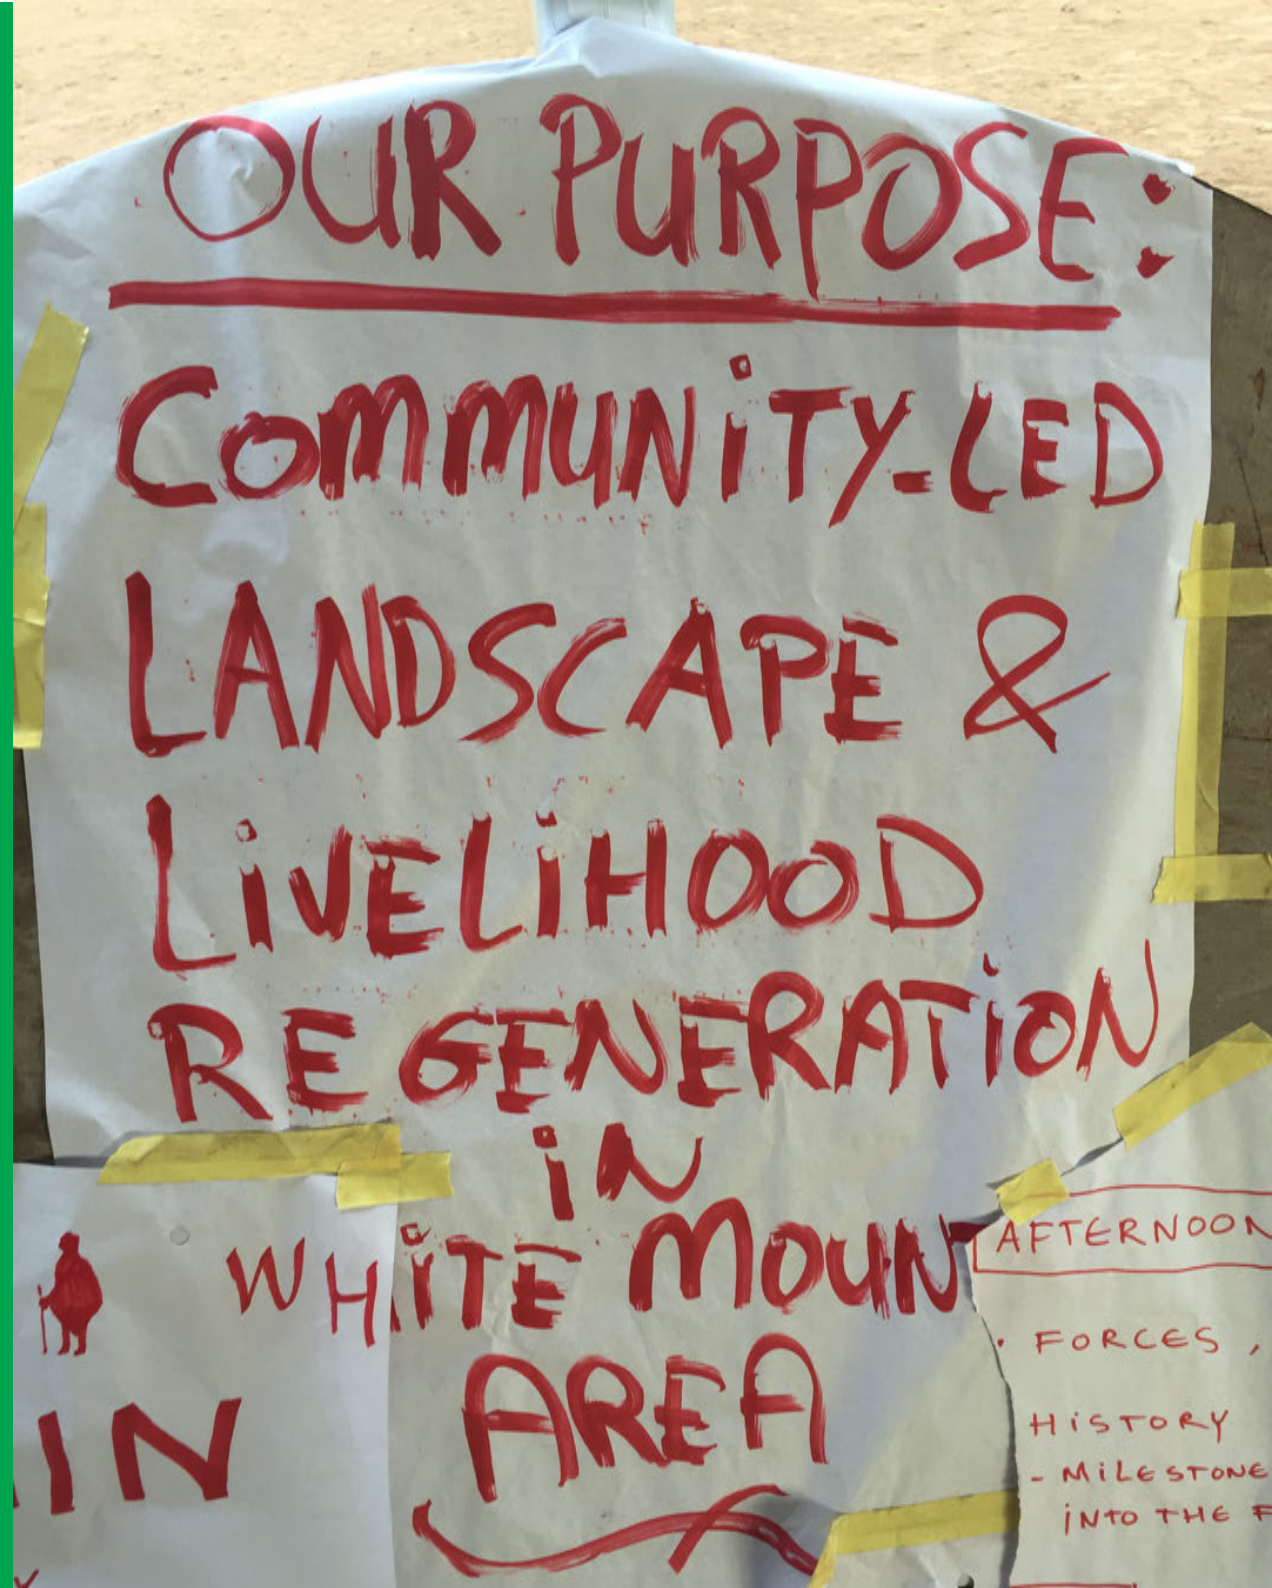 OUR PURPOSE:
COMMUNITY-LED
LANDSCAPE &
LIVELIHOOD
REGENERATION
IN
WHITE MOUNT
AREA
IN
AFTERNOON
· FORCES,
HISTORY
- MILESTONE
INTO THE F